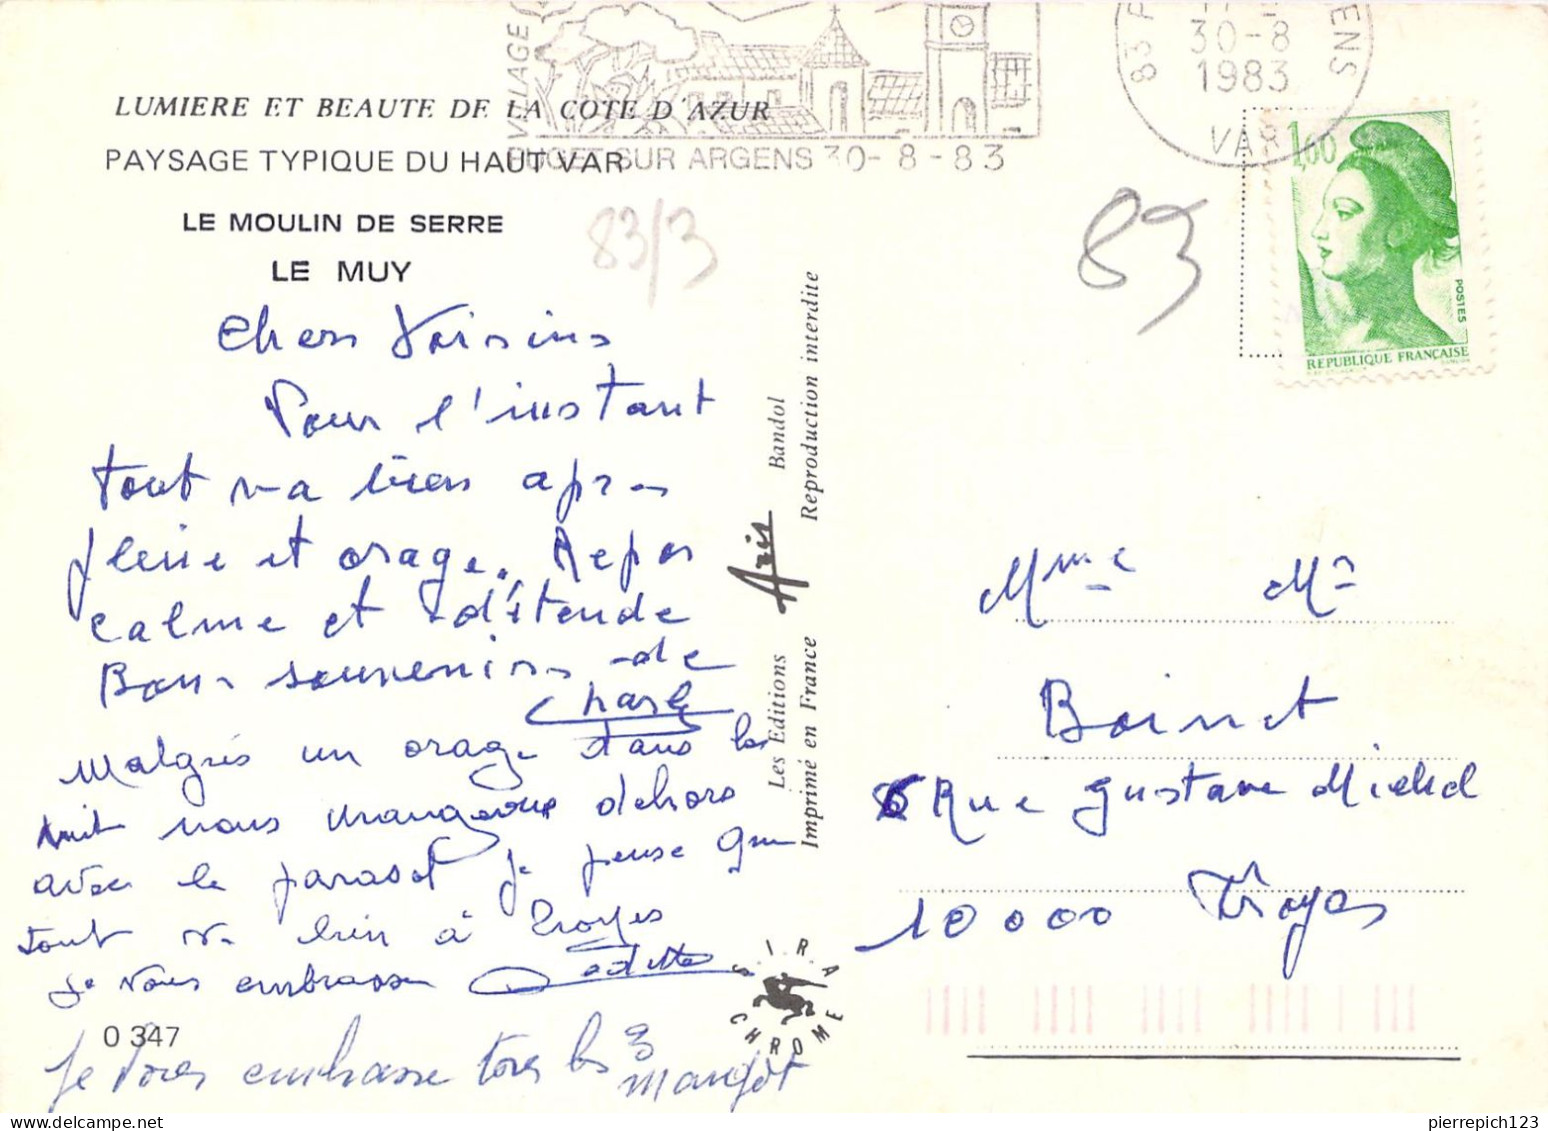 LUMIERE ET BEAUTE DE LA COTE D'AZUR
PAYSAGE TYPIQUE DU HAUT VAR
LE MOULIN DE SERRE
LE MUY
VILLAGE
PUGET SUR ARGENS 30-8-83
83 P ENS
30-8
1983
VAR
1,60
POSTES
REPUBLIQUE FRANÇAISE
83/3
83
Chers Voisins
Pour l'instant
tout va bien après
pluie et orage. Repos
calme et détende
Bons souvenirs de
Charle
Malgrés un orage dans la
nuit nous mangeons dehors
avec le parasol je pense que
tout va bien à Troyes
je vous embrasse Odette
0 347
Je vous embrasse tous les 3
Margot
Les Editions Aris Bandol
Imprimé en France Reproduction interdite
S.I.R.A.
CHROME
Mme Mr
Boinet
6 Rue Gustave Michel
10000 Troyes
pierrepich123